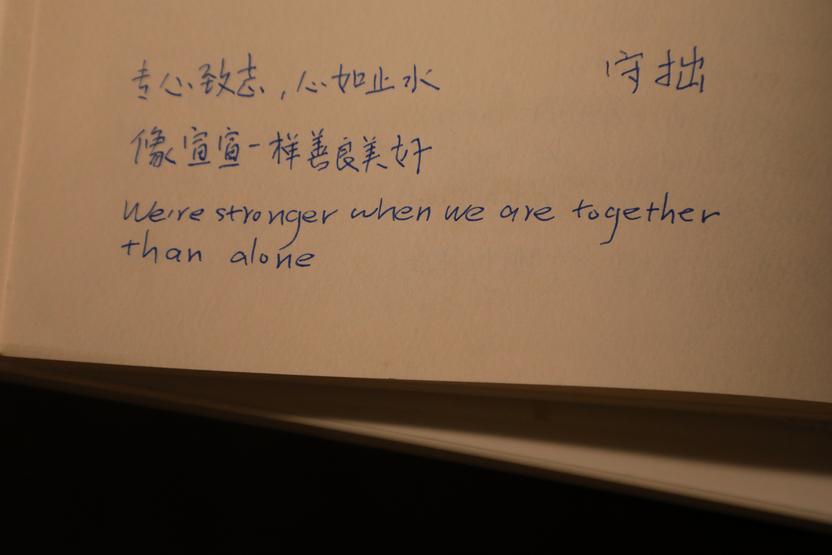 专心致志，心如止水 守拙
像宣宣一样善良美好
We're stronger when we are together
than alone